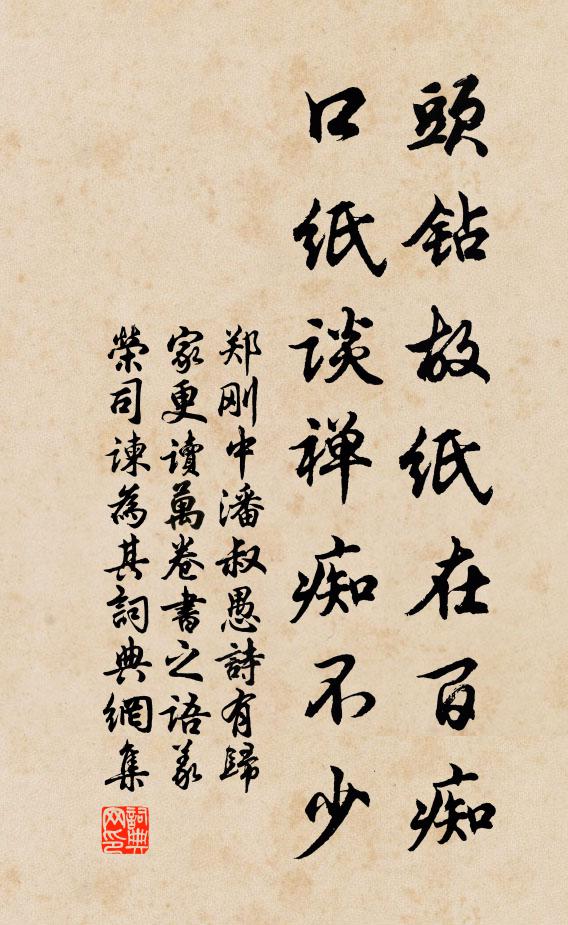 頭鉆故紙在百痴
口紙談禅痴不少
郑刚中潘叔愚詩有歸
家更讀萬卷書之語義
榮司諫為其詞典網集
詞典网印